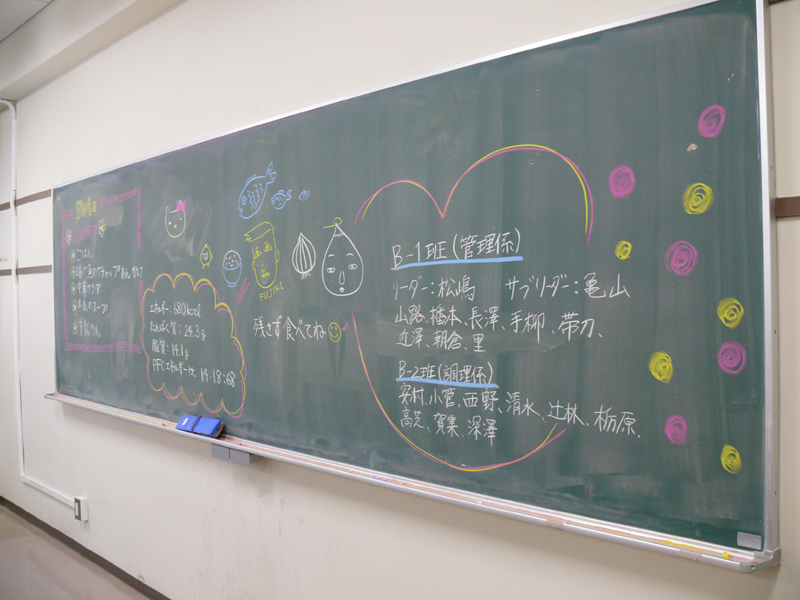 ごはん
中華サラダ
エネルギー:680kcal
たんぱく質:24.3g
脂質:14.1g
PFCエネルギー比 14:18:68
FUJIKI
残さず食べてね
B-1班(管理係)
リーダー:松嶋 サブリーダー:亀山
山路、橋本、長澤、手柳、帯刀、
近澤、朝倉、里
B-2班(調理係)
安村、小管、西野、清水、辻林、栃原、
高芝、賀集、深澤